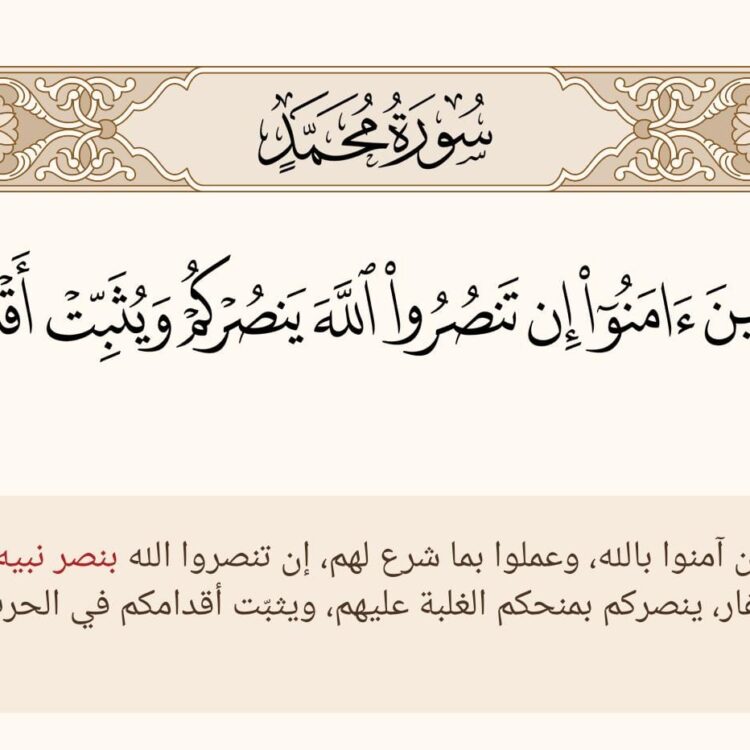 سُورَةُ مُحَمَّدٍ
ءَامَنُوٓا۟ إِن تَنصُرُوا۟ ٱللَّهَ يَنصُرْكُمْ وَيُثَبِّتْ
آمنوا بالله، وعملوا بما شرع لهم، إن تنصروا الله بنصر نبيه
ينصركم بمنحكم الغلبة عليهم، ويثبّت أقدامكم في